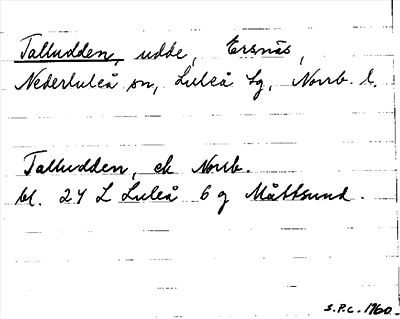 Talludden, udde, Ersnäs,
Nederluleå sn, Luleå tg, Norrb. l.
Talludden, ek Norrb.
bl. 24 L Luleå 6 g Måttsund.
S.P.C. 1960.